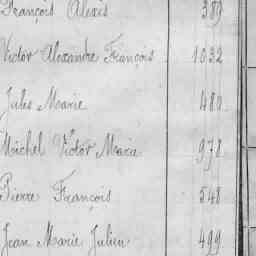 François Alexis 389
Victor Alexandre François 1032
Jules Marie 480
Michel Victor Marie 978
Pierre François 548
Jean Marie Julien 499